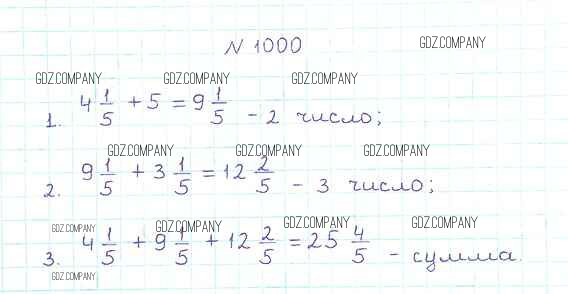 N 1000
GDZ.COMPANY
GDZ.COMPANY GDZ.COMPANY GDZ.COMPANY
1. 4 1/5 + 5 = 9 1/5 - 2 число;
GDZ.COMPANY GDZ.COMPANY GDZ.COMPANY
2. 9 1/5 + 3 1/5 = 12 2/5 - 3 число;
GDZ.COMPANY GDZ.COMPANY GDZ.COMPANY GDZ.COMPANY
3. 4 1/5 + 9 1/5 + 12 2/5 = 25 4/5 - сумма.
GDZ.COMPANY